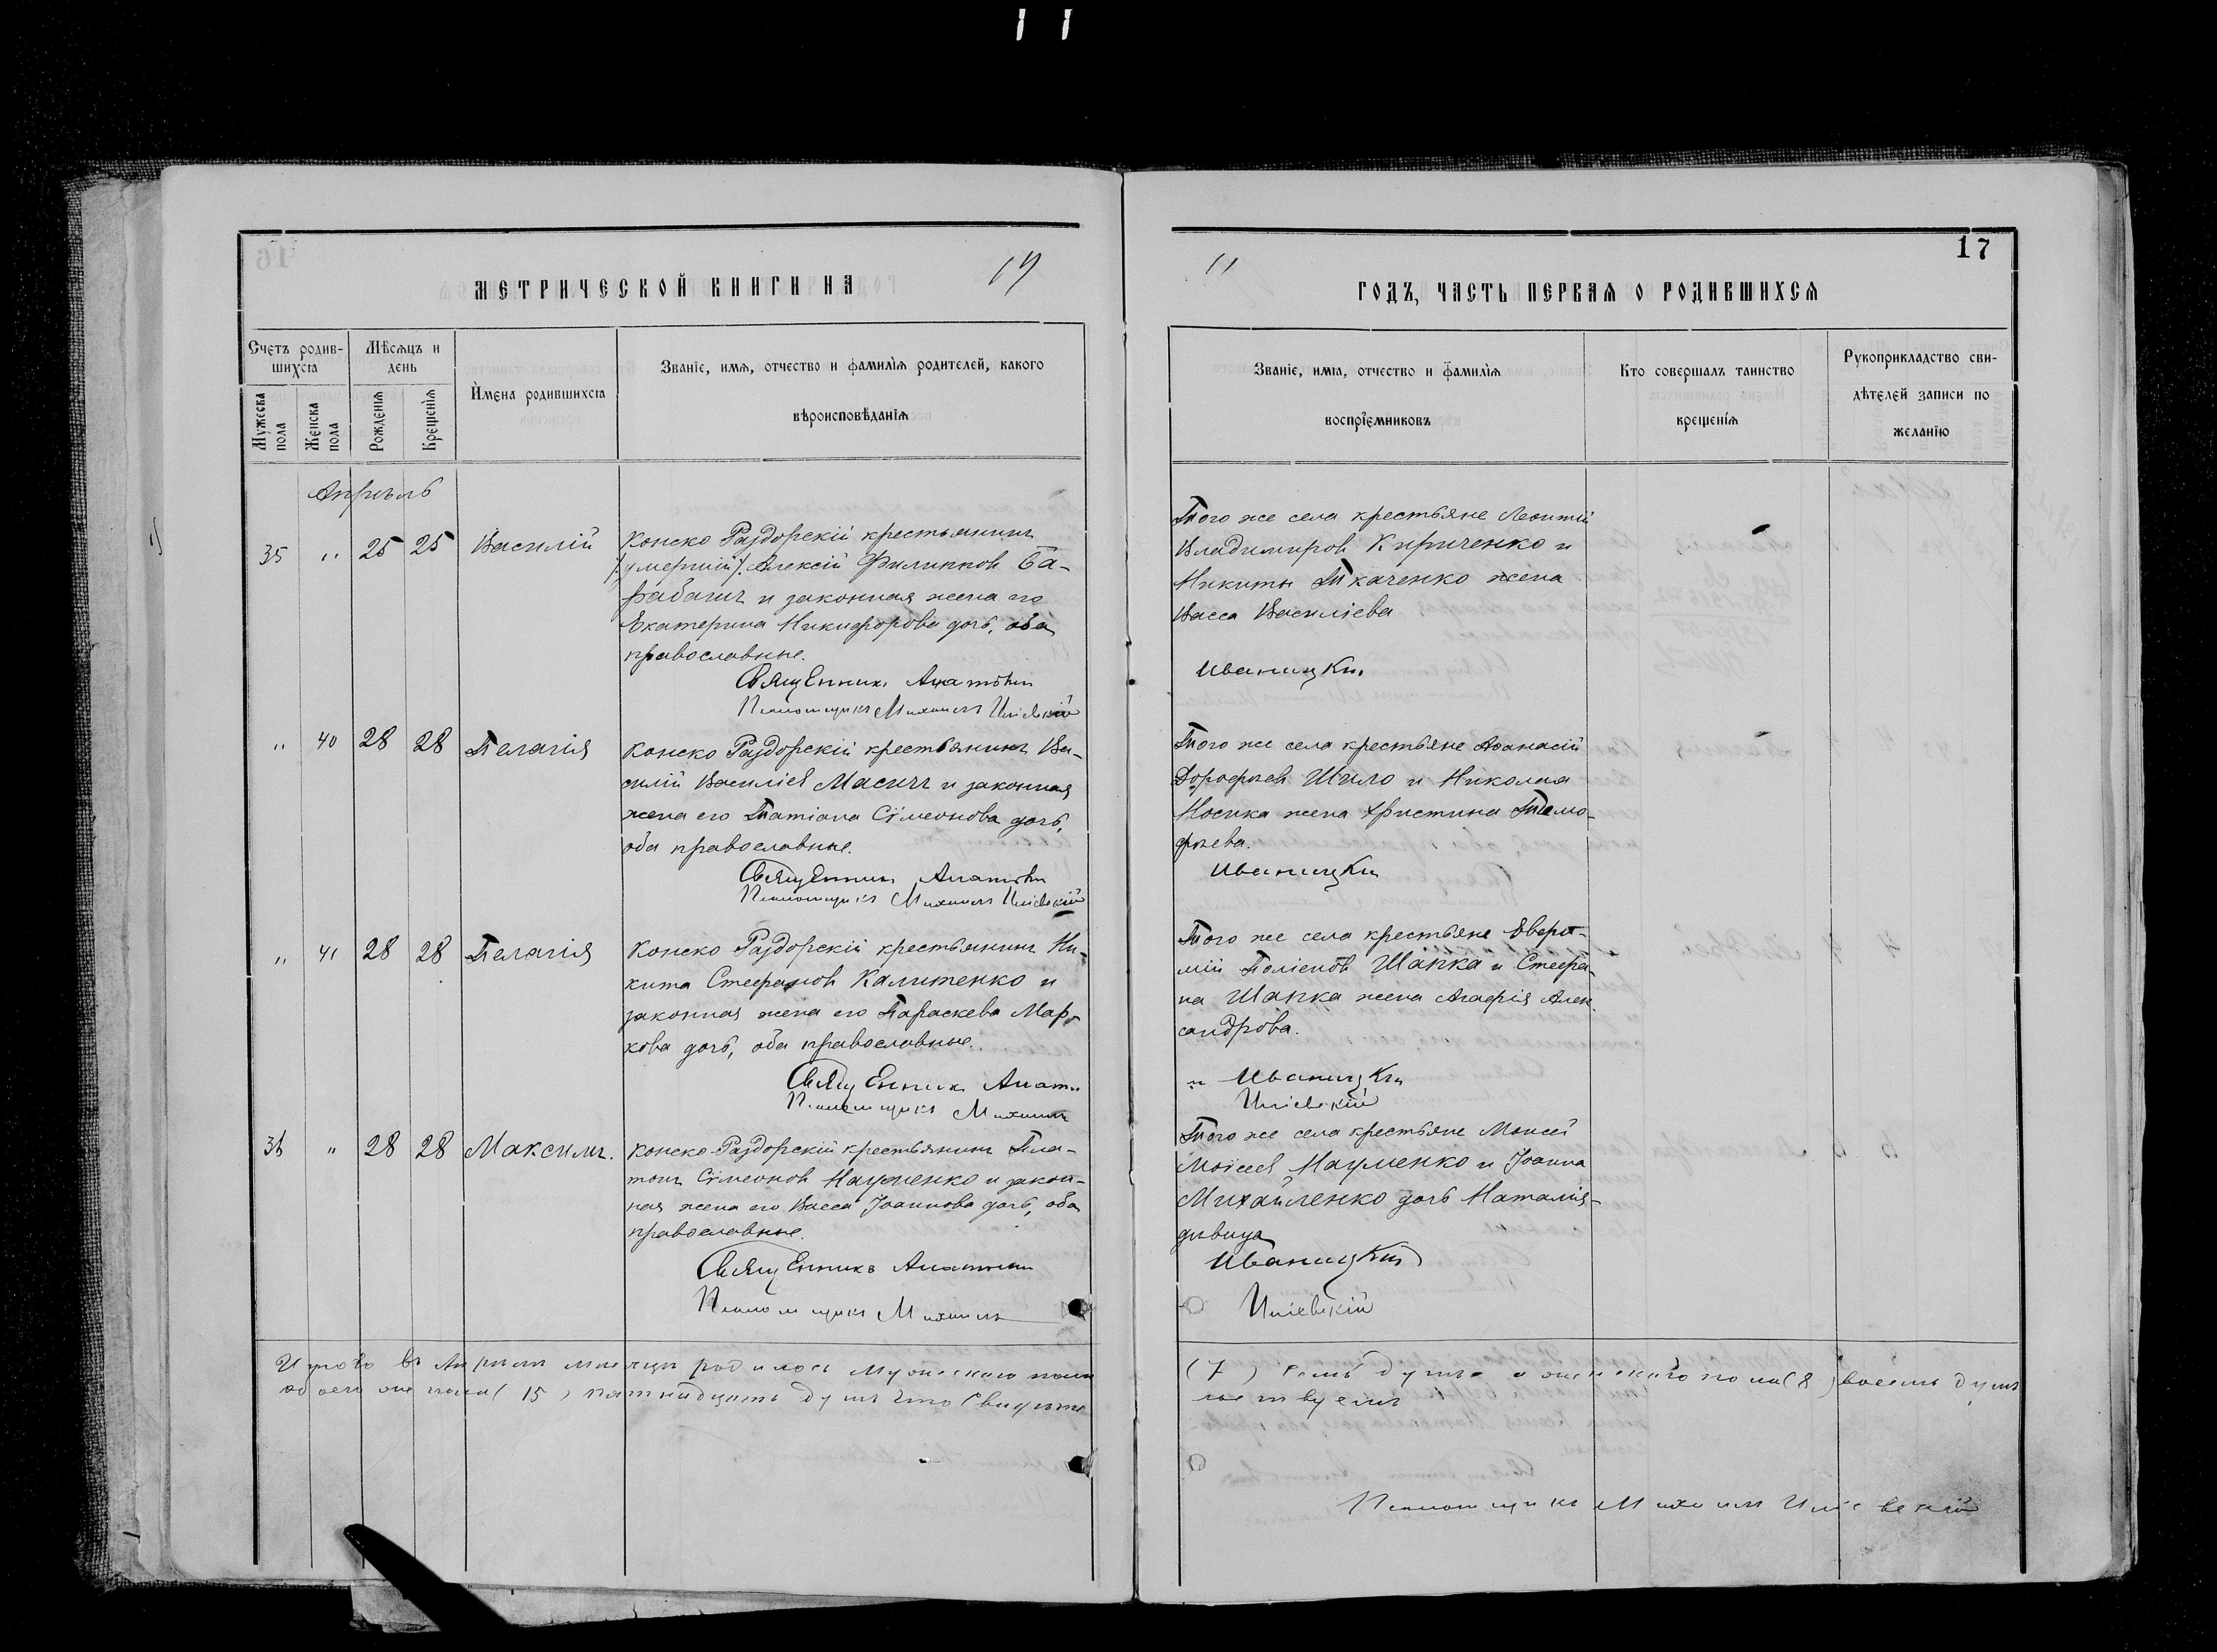 17
МЕТРИЧЕСКОЙ КНИГИ НА 19
11 ГОДЪ, ЧАСТЬ ПЕРВАЯ О РОДИВШИХСЯ
Счетъ родив-
шихся
Мѣсяцъ и
день
Мужеска
пола
Женска
пола
Рожденія
Крещенія
Имена родившихся
Званіе, имя, отчество и фамилія родителей, какого
вѣроисповѣданія
Званіе, имя, отчество и фамилія
воспріемниковъ
Кто совершалъ таинство
крещенія
Рукоприкладство сви-
дѣтелей записи по
желанію
Апрѣль
35 " 25 25 Василій
Конско Раздорскій крестьянинъ
/умершій/ Алексій Филипповъ Ба-
рабашъ и законная жена его
Екатерина Никифорова дочь, оба
православные.
Священникъ
Псаломщикъ Михаилъ
Того же села крестьяне Леонтій
Владимировъ Кириченко и
Никиты Ткаченко жена
Васса Василіева
Иваницкій
" 40 28 28 Пелагія
Конско Раздорскій крестьянинъ Ва-
силій Василіевъ Масичъ и законная
жена его Татіана Сімеонова дочь,
оба православные.
Священникъ
Псаломщикъ Михаилъ
Того же села крестьяне Аѳанасій
Дорофеевъ Шило и Николая
Носика жена Христина Тимо-
фѣева.
Иваницкій
" 41 28 28 Пелагія
Конско Раздорскій крестьянинъ Ни-
кита Стефановъ Калитенко и
законная жена его Параскева Мар-
кова дочь, оба православные.
Священникъ
Псаломщикъ Михаилъ
Того же села крестьяне
Шапка и Стефа-
на Шапка жена Агафія Алек-
сандрова.
Иваницкій
36 " 28 28 Максимъ.
Конско-Раздорскій крестьянинъ Пла-
тонъ Сімеоновъ Науменко и закон-
ная жена его Васса Іоаннова дочь, оба
православные.
Священникъ
Псаломщикъ Михаилъ
Того же села крестьяне Моисей
Моісеевъ Науменко и Іоанна
Михайленко дочь Наталія-
дѣвица
Иваницкій
Итого въ Апрѣлѣ мѣсяцѣ родилось мужескаго пола
(7) семь душъ а женскаго пола (8) восемь душъ
обоего же пола (15) пятнадцать душъ что свидѣтель-
ствуемъ
Псаломщикъ Михаилъ